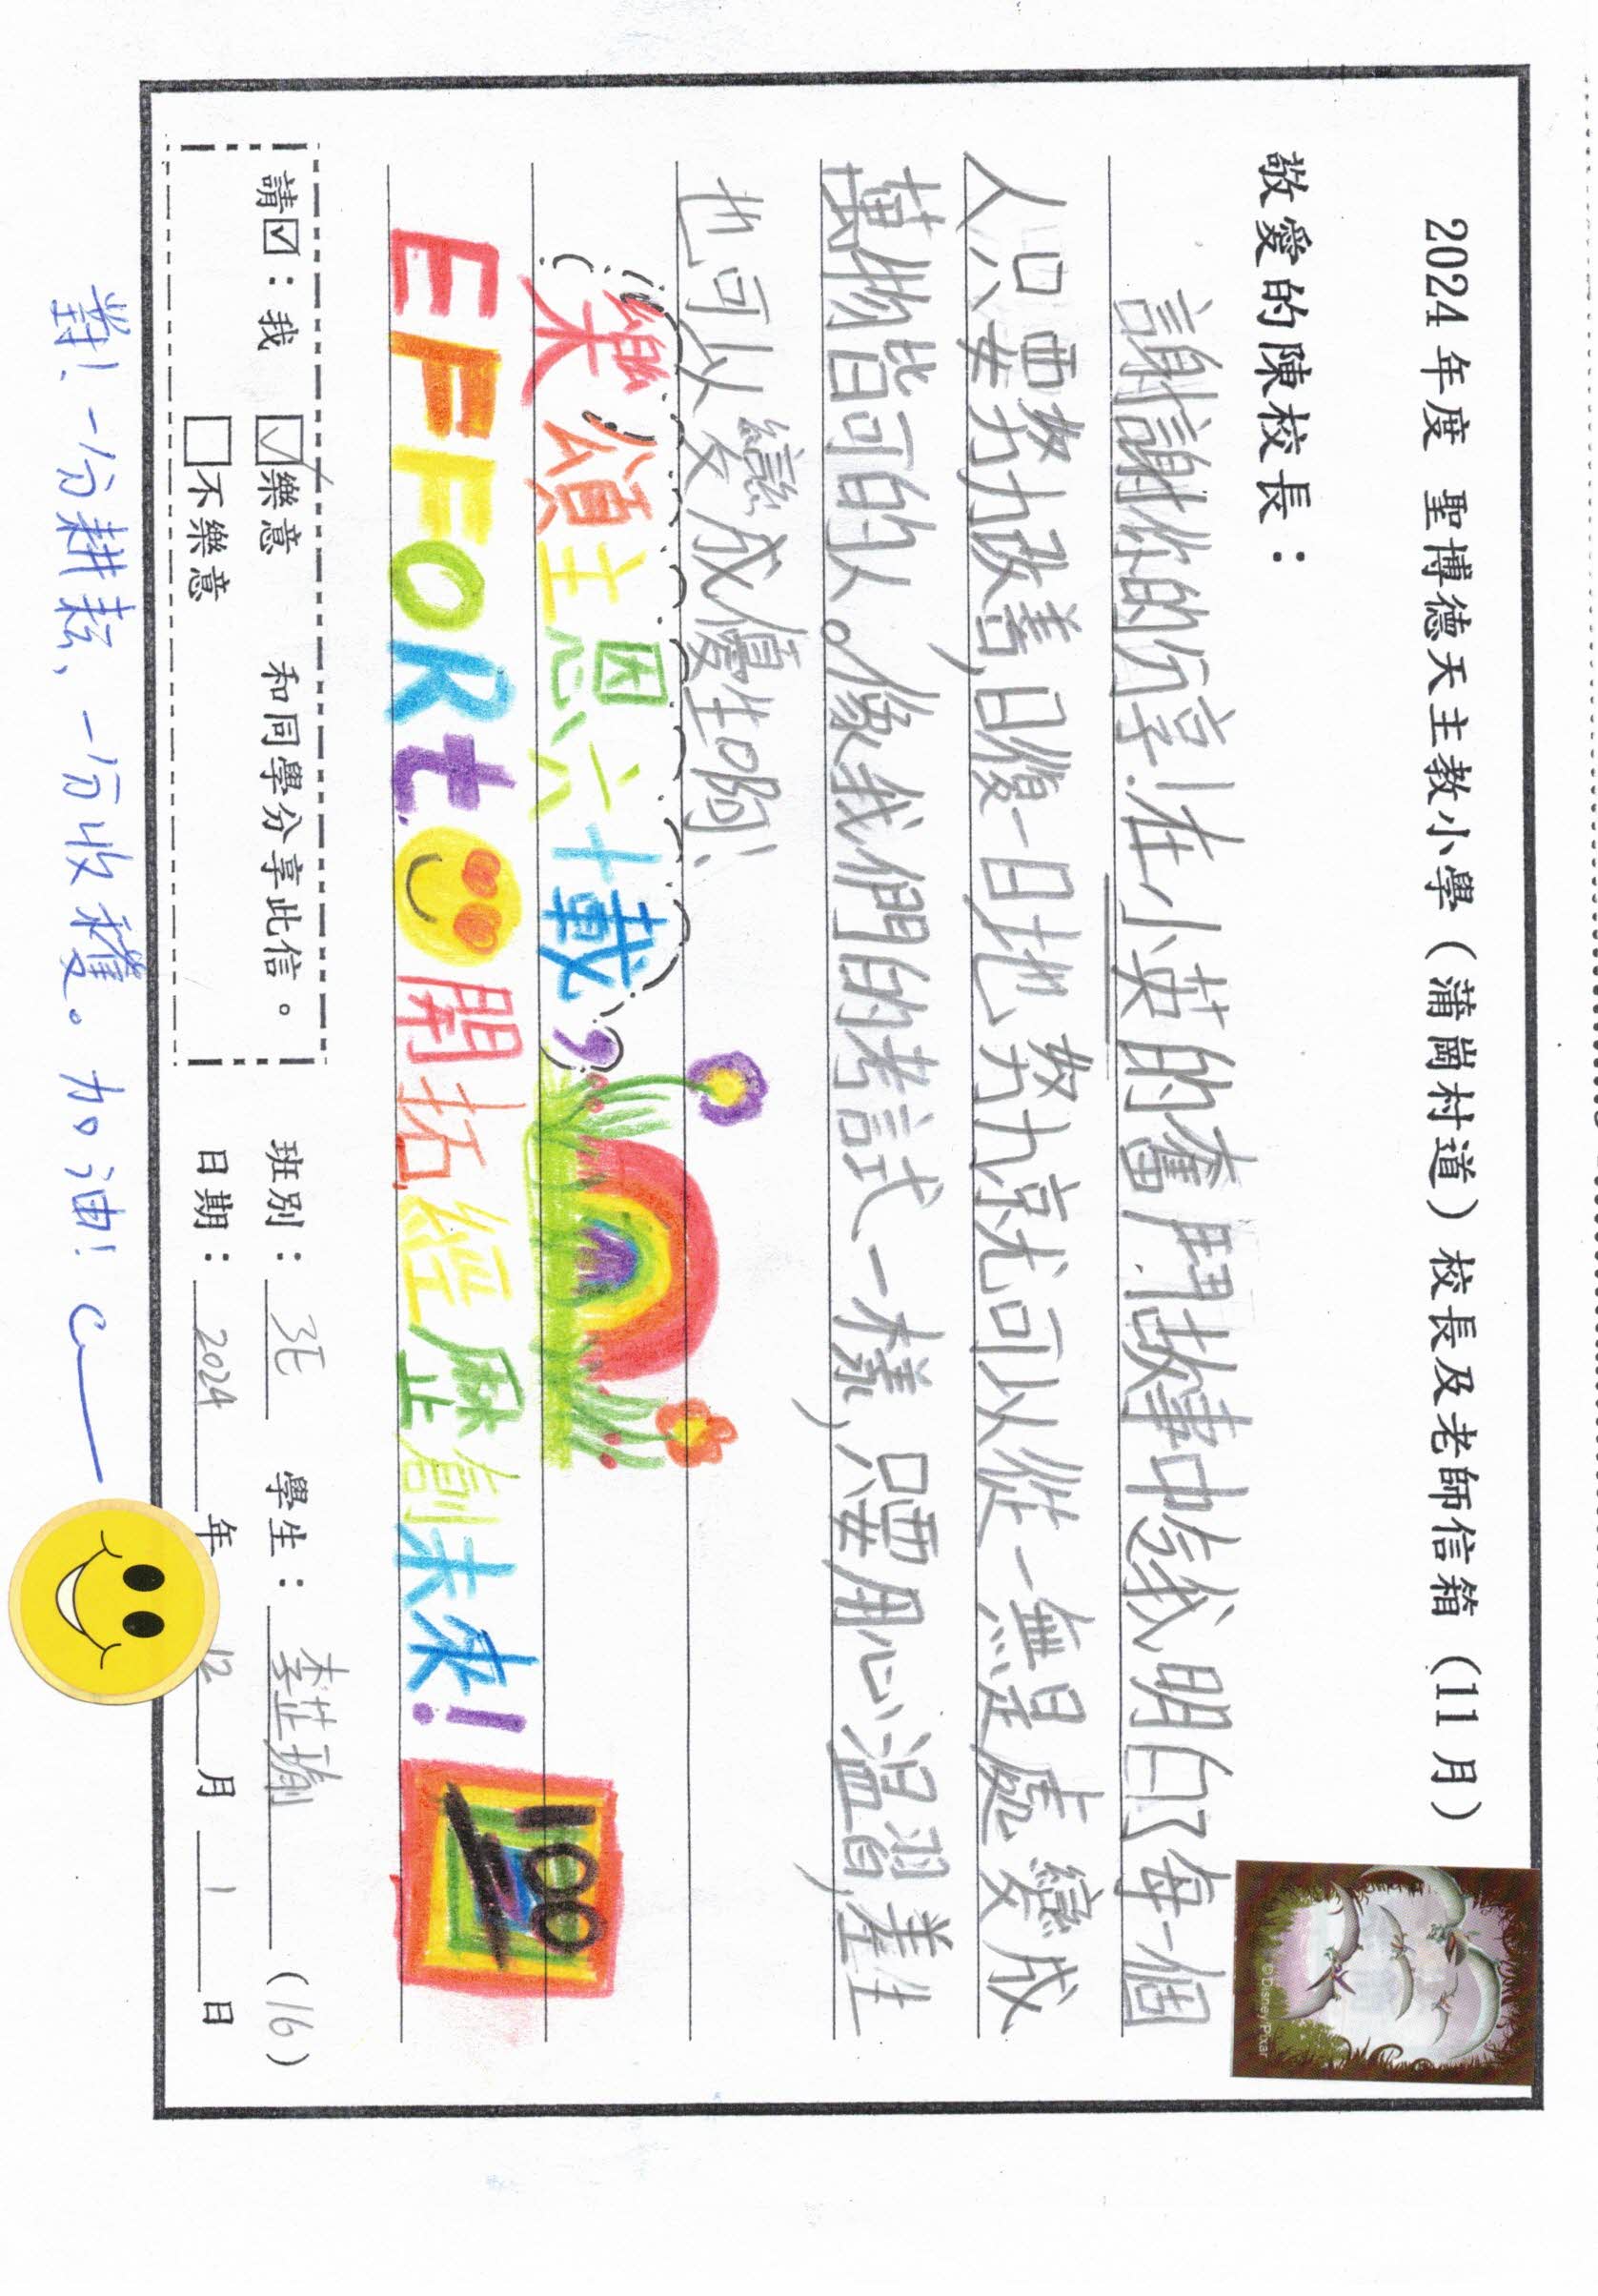 2024年度 聖博德天主教小學（蒲崗村道）校長及老師信箱（11月）
©Disney/Pixar
敬愛的陳校長：
謝謝你的分享！在小英的奮鬥故事中，令我明白了每一個
人只要努力改善，日復一日地努力，就可以從一無是處變成
萬物皆可的人。像我們的考試一樣，只要用心溫習，差生
也可以變成優生啊！
樂頌主恩六十載，
EFFORt 開拓經歷創未來！
100
請☑：我 ☑樂意 和同學分享此信。
□不樂意
班別：3E 學生：李芷瑜（16）
日期：2024年12月1日
對！一分耕耘、一分收穫。加油！